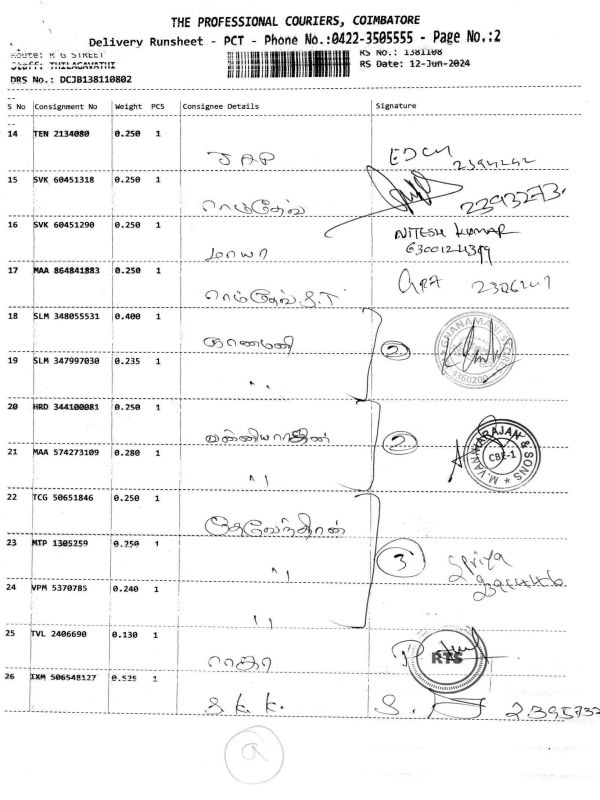 THE PROFESSIONAL COURIERS, COIMBATORE
Delivery Runsheet - PCT - Phone No.:0422-3505555 - Page No.:2
Route: R G STREET RS No.: 1381108
Staff: THILAGAVATHI RS Date: 12-Jun-2024
DRS No.: DCJB138110802
S No Consignment No Weight PCS Consignee Details Signature
14 TEN 2134080 0.250 1 JAP
15 SVK 60451318 0.250 1 ராமதேவ் 2393273.
16 SVK 60451290 0.250 1 மாயா NITESH KUMAR
17 MAA 864841883 0.250 1 ராம்தேவ்.S.T
18 SLM 348055531 0.400 1 ஞானமணி 2
19 SLM 347997030 0.235 1 " 9360200
20 HRD 344100081 0.250 1 வன்னியராஜன் 2
21 MAA 574273109 0.280 1 " M. VANNIARAJAN & SONS CBE-1
22 TCG 50651846 0.250 1 தேவேந்திரன்
23 MTP 1305259 0.250 1 " 3 Priya
24 VPM 5370785 0.240 1 "
25 TVL 2406690 0.130 1 ராஜா RTS
26 IXM 506548127 0.525 1 S.K.K. S. 2395732
a